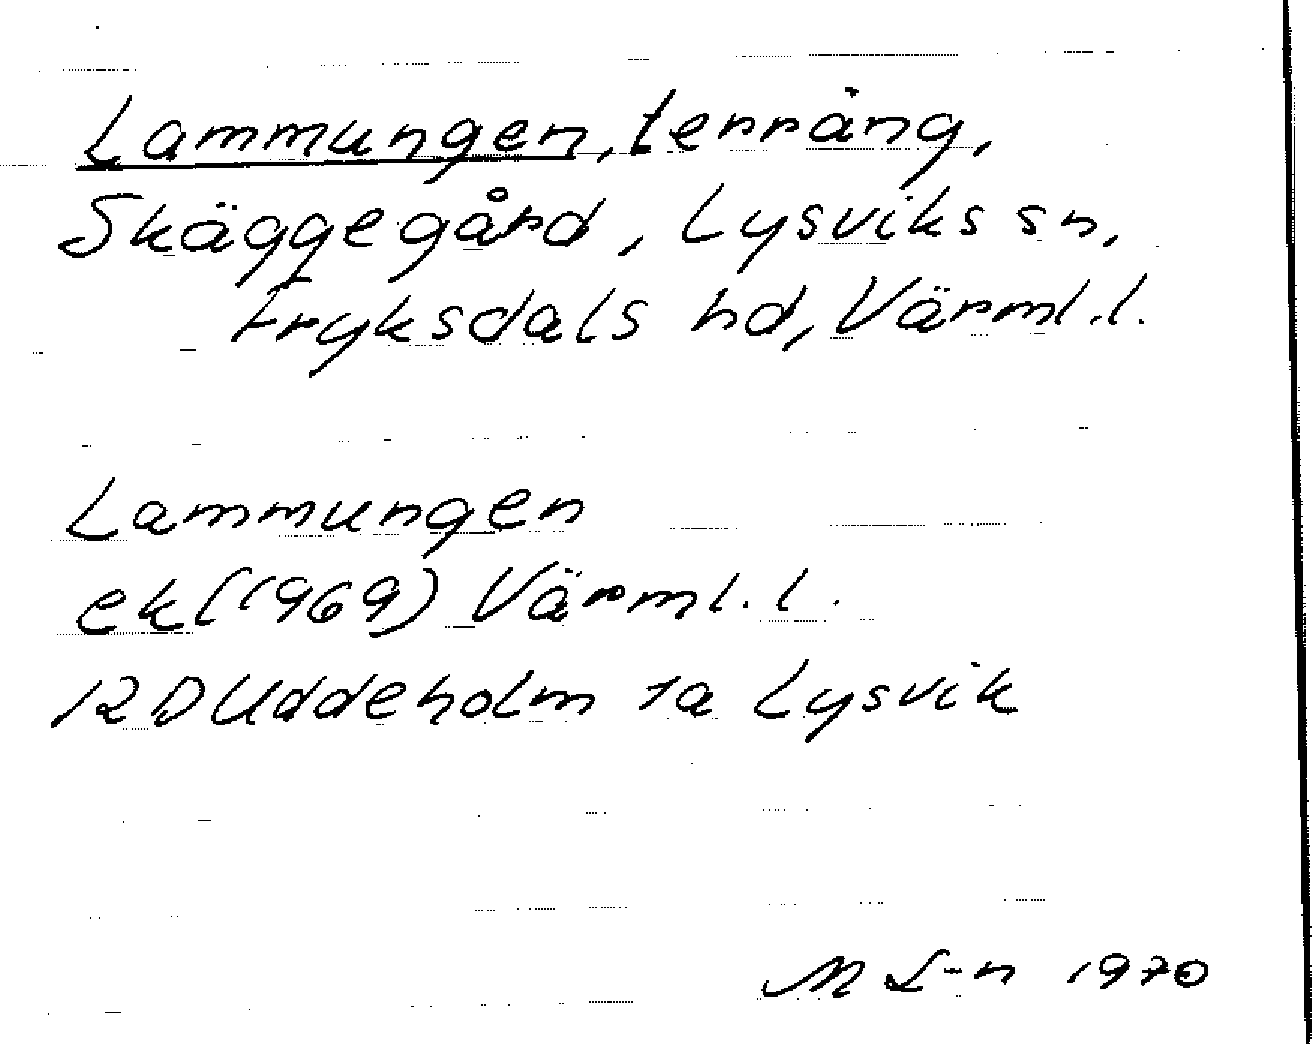 Lammungen, terräng,
Skäggegård, Lysviks sn,
Fryksdals hd, Värml. l.
Lammungen
ek (1969) Värml. l.
12D Uddeholm 1a Lysvik
M L-n 1970